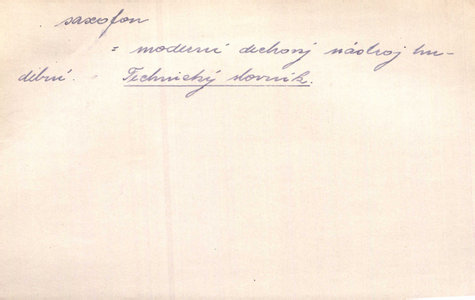 saxofon
= moderní dechový nástroj hu-
dební. - Technický slovník.